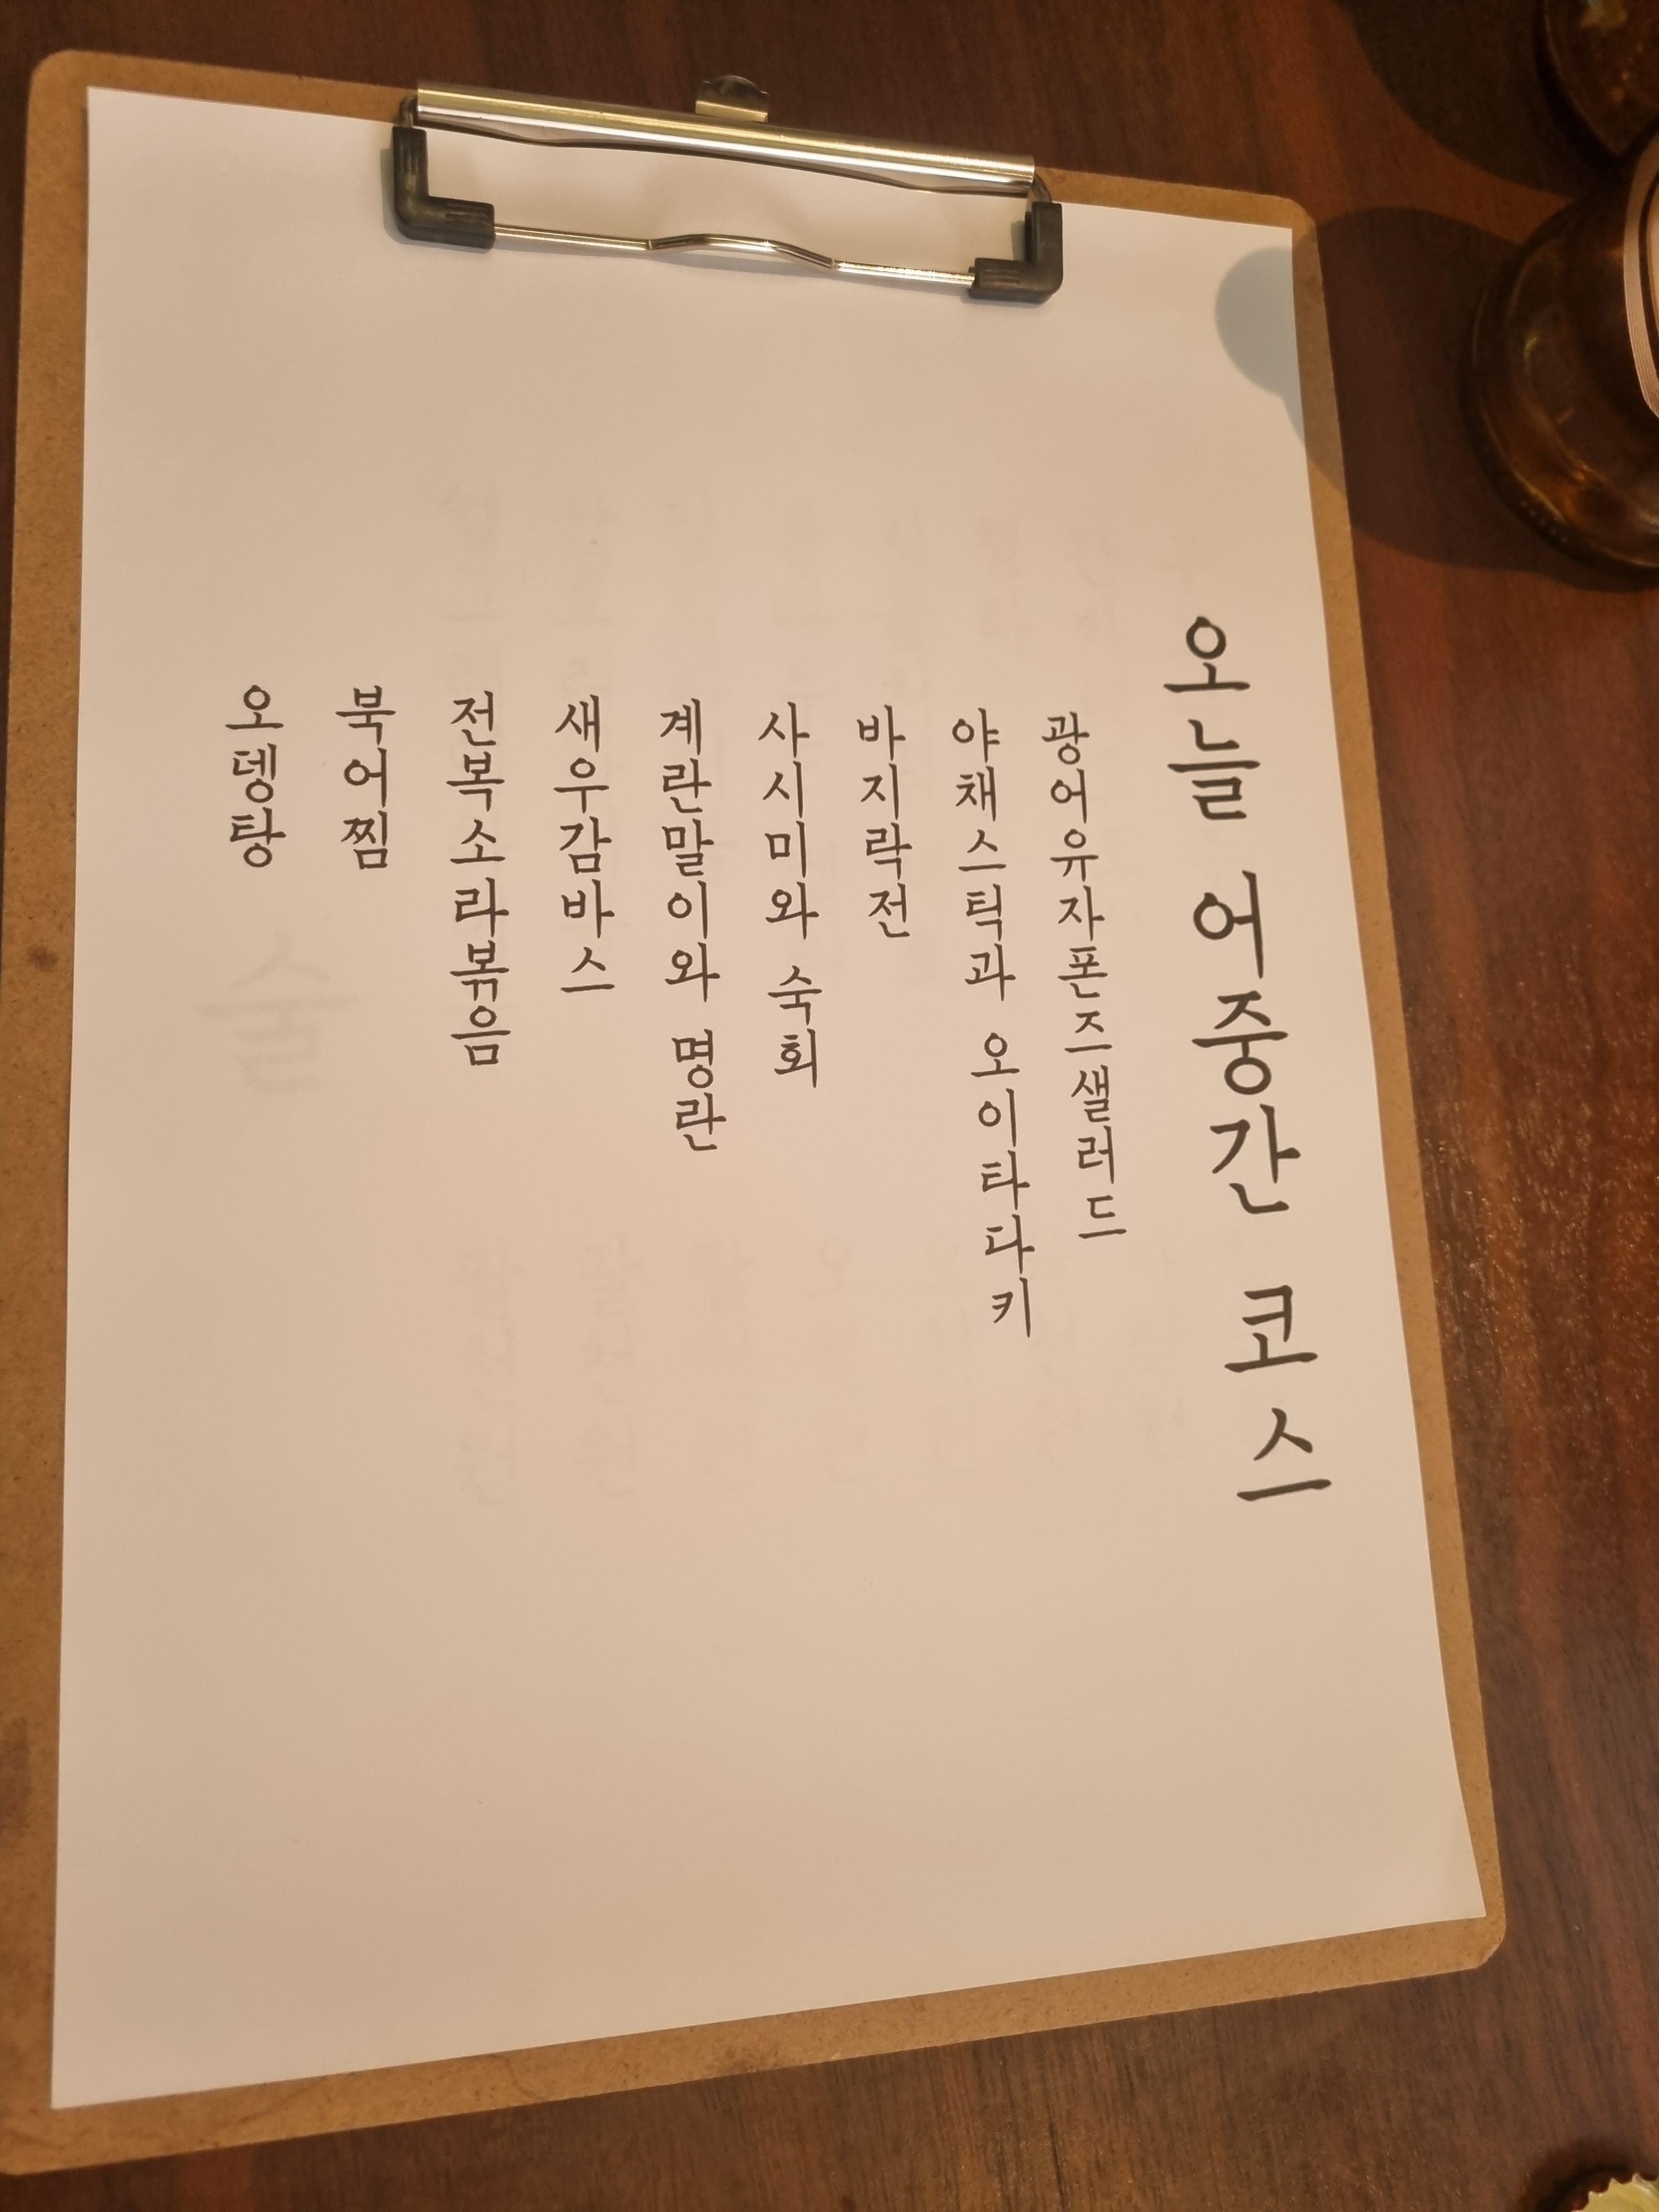 오늘 어중간 코스
광어유자폰즈샐러드
야채스틱과 오이타다키
바지락전
사시미와 숙회
계란말이와 명란
새우감바스
전복소라볶음
북어찜
오뎅탕
술